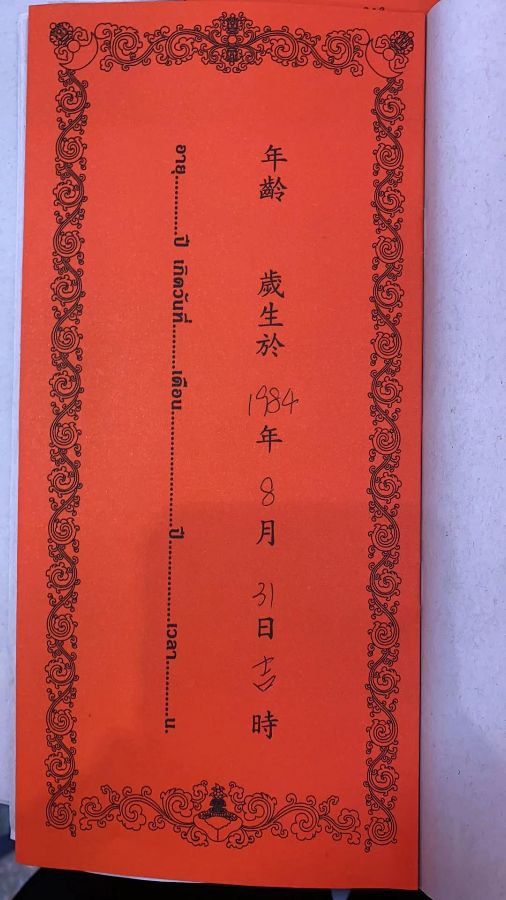 年齡 歲生於 1984 年 8 月 31 日 吉 時
อายุ............ปี เกิดวันที่............เดือน........................ปี................เวลา............น.